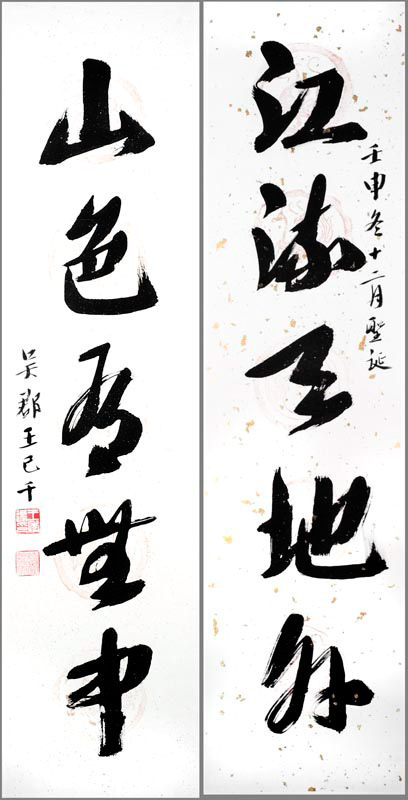 江流天地外
壬申冬十二月聖誕
山色有無中
吳郡王己千